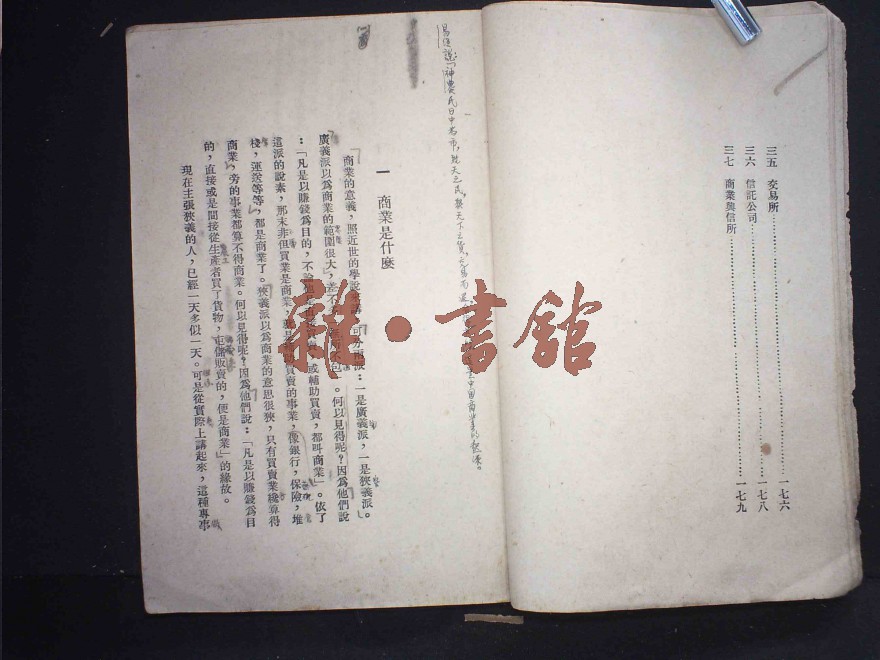 三五 交易所……一七六
三六 信託公司……一七八
三七 商業興信所……一七九
易傳說「神農氏日中為市，致天之民，聚天下之貨，交易而退，中國商業的起源。
一 商業是什麼
商業的意義，照近世的學說來講，可分兩派：一是廣義派，一是狹義派。
廣義派以為商業的範圍很大，差不多包。何以見得呢？因為他們說
：「凡是以賺錢為目的，不論或輔助買賣，都叫商業」。依了
這派的說素，那末非但買業是商業，就是輔助買賣的事業，像銀行，保險，堆
棧，運送等等，都是商業了。狹義派以為商業的意思很狹，只有買賣業纔算得
商業，旁的事業都算不得商業。何以見得呢？因為他們說：「凡是以賺錢為目
的，直接或是間接從生產者買了貨物，屯儲販賣的，便是商業」的緣故。
現在主張狹義的人，已經一天多似一天。可是從實際上講起來，這種專事
雜·書館